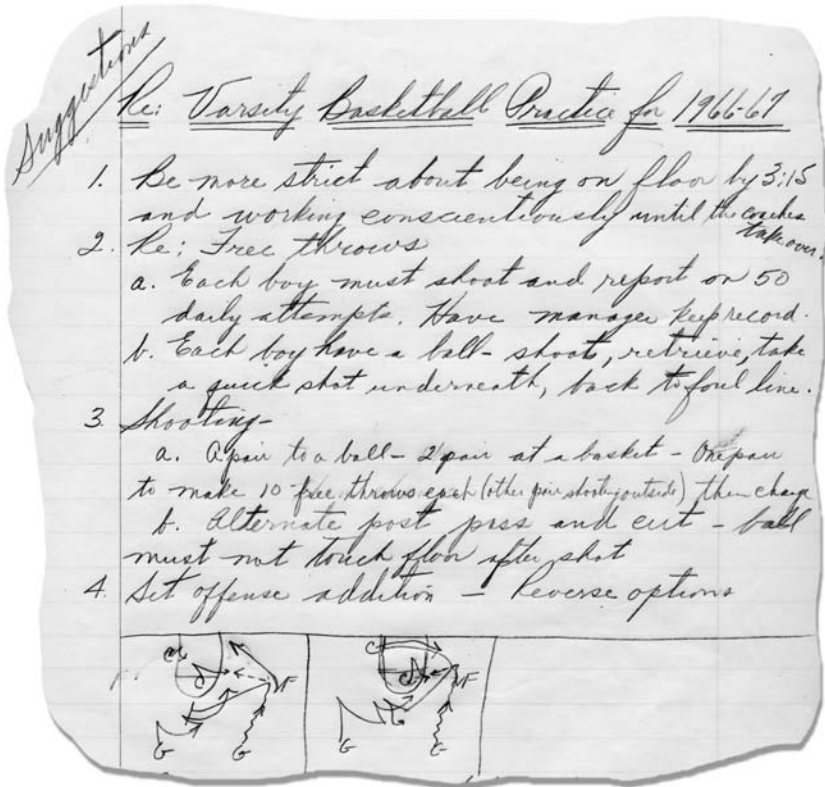 Suggestions
Re: Varsity Basketball Practice for 1966-67
1. Be more strict about being on floor by 3:15
and working conscientiously until the coaches
take over.
2. Re: Free throws
a. Each boy must shoot and report on 50
daily attempts. Have manager keep record.
b. Each boy have a ball - shoot, retrieve, take
a quick shot underneath, back to foul line.
3. Shooting -
a. A pair to a ball - 2 pair at a basket - One pair
to make 10 free throws each (other pair shooting outside) then change
b. Alternate post pass and cut - ball
must not touch floor after shot
4. Set offense addition - Reverse options
C F C F
G G G G